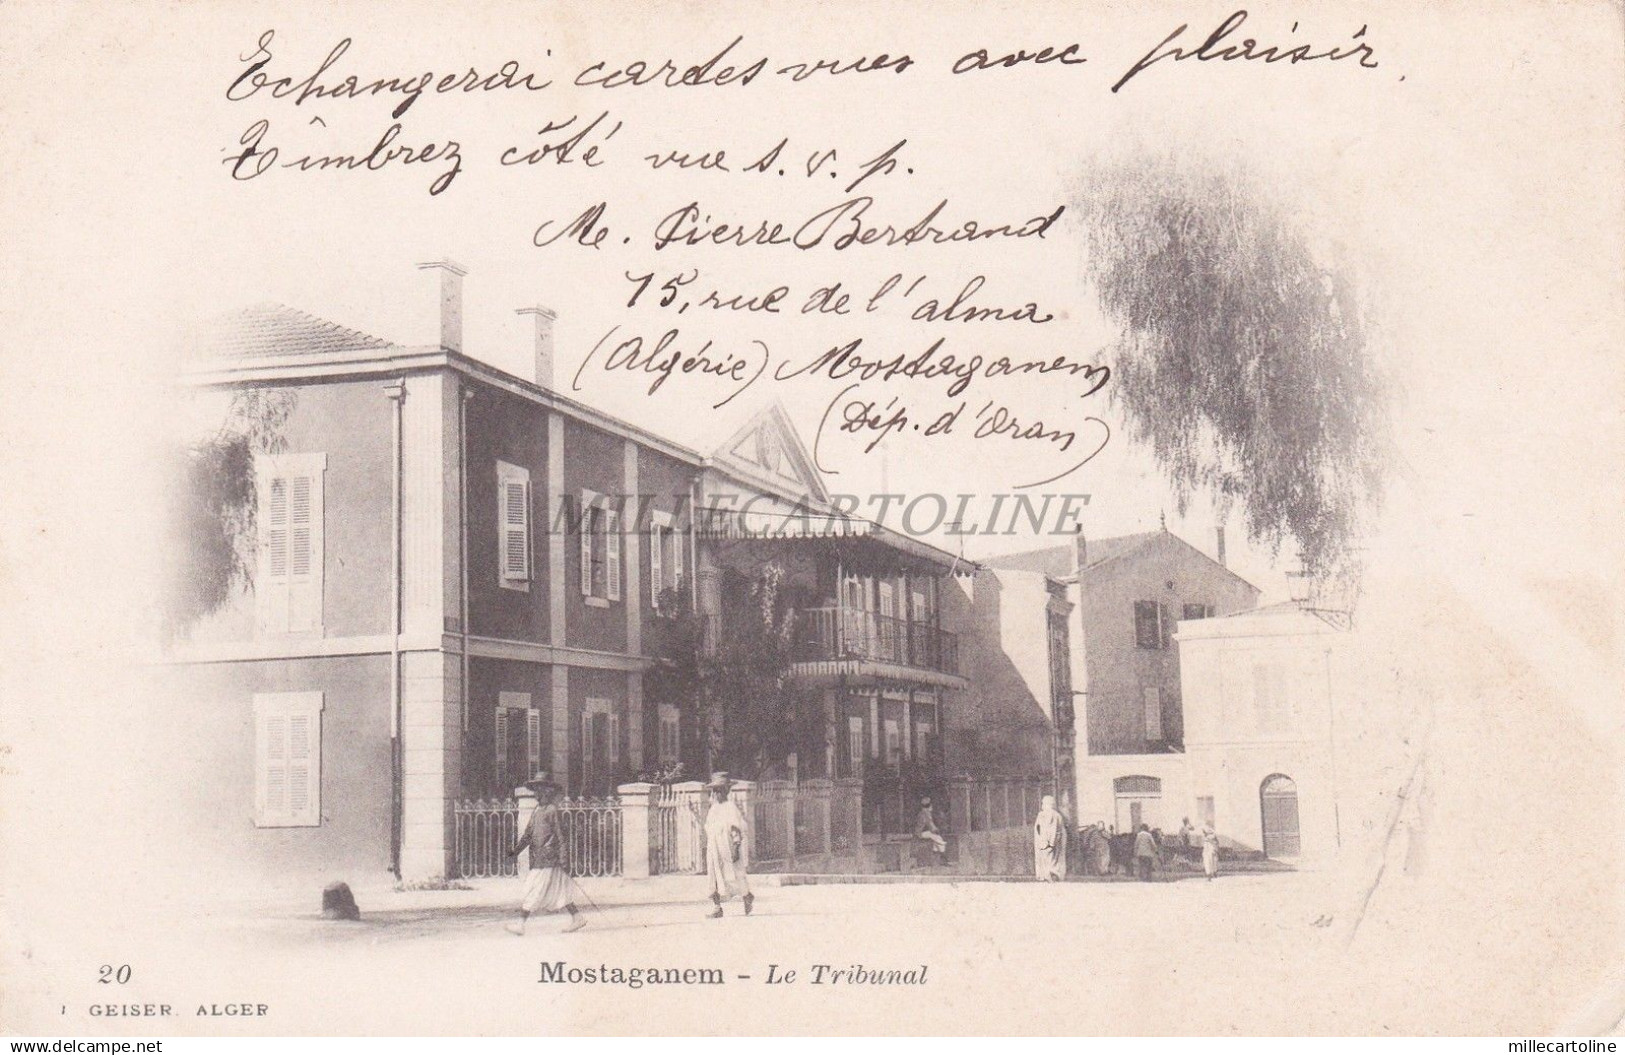 Echangerai cartes vues avec plaisir.
Timbrez côté vue s. v. p.
M. Pierre Bertrand
15, rue de l'alma
(Algérie) Mostaganem
(Dép. d'Oran)
MILLECARTOLINE
20 Mostaganem - Le Tribunal
J GEISER. ALGER
www.delcampe.net millecartoline